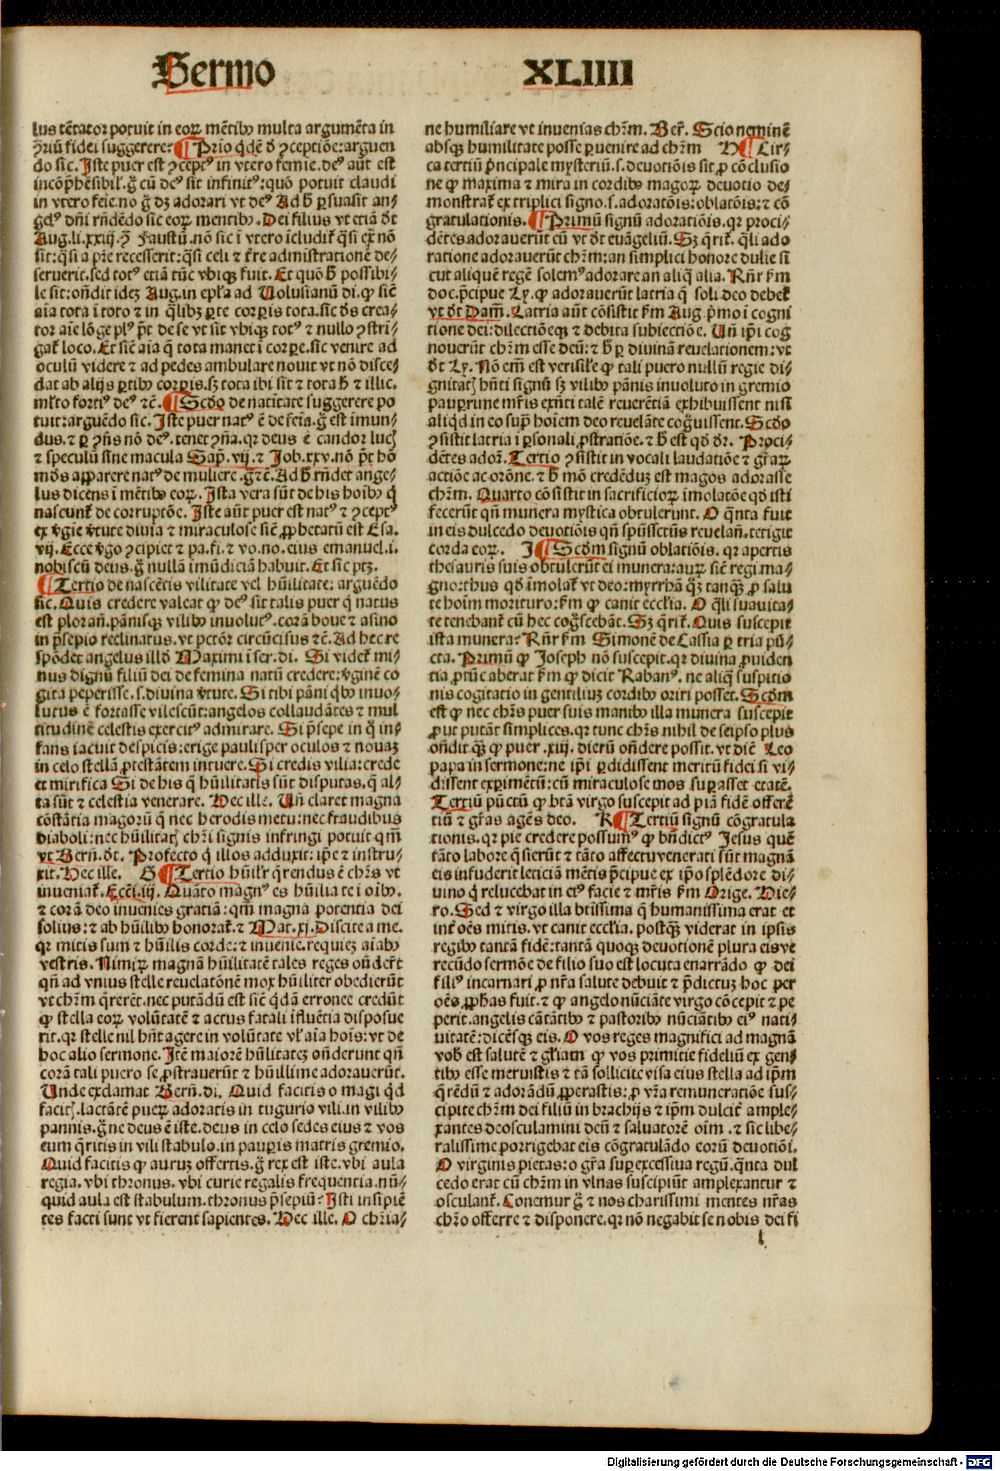 Sermo XLIIII
lus tētator potuit in eoꝝ mētibꝰ multa argumēta in
ꝯriū fidei suggerere: ¶ Prīo q̇dē ꝺ ꝯceptiōe: arguen
do sic. Iste puer est ꝯceptꝰ in vtero femīe. deꝰ aūt est
incōp̄hēsibil'. g̃ cū deꝰ sit infinitꝰ: quō potuit claudi
in vtero feīe. no g̃ dꝫ adorari vt deꝰ Ad h̄ ꝑsuasit an-
gelꝰ dn̄i rn̄dēdo sic eoꝝ mentibꝰ. Dei filius vt etiā ꝺt
Aug. li. xxiij. ꝯ̄ Faustū. nō sic ī vtero īcludit̃ q̃si ex̄ nō
sit: q̃si a pr̄e recesserit: q̃si celi ⁊ tr̄re admīstrationē de-
seruerit. sed totꝰ etiā tūc vbiqꝫ fuit. Et quō h̄ possibi-
le sit: on̄dit ideꝫ Aug. in epl̄a ad Uolusianū di. ꝙ sic̄
aīa tota ī toto ⁊ in q̃libꝫ ꝑte corꝑis tota. sic ꝺs crea-
tor aīe lōge plꝰ pōt de se vt sit vbiqꝫ totꝰ ⁊ nullo ꝯstri-
gat̃ loco. Et sic̄ aīa q̄ tota manet ī corꝑe. sic venire ad
oculū videre ⁊ ad pedes ambulare nouit vt nō disce-
dat ab alijs ꝑtibꝰ corꝑis. sꝫ tota ibi sit ⁊ tota h̄ ⁊ illic.
ml̄to fortiꝰ deꝰ ⁊c̄. ¶ Scd̄o de natiuitate suggerere po
tuit: arguēdo sic. Iste puer natꝰ ē de feīa. g̃ est imun-
dus. ⁊ ꝑ ꝯn̄s nō deꝰ. tenet ꝯn̄a. qꝛ deus ē candor lucꝭ
⁊ speculū sine macula Sap. vij. ⁊ Job. xxv. nō pōt hō
mūdꝰ apparere natꝰ de muliere. g̃ ⁊c̄. Ad h̄ rn̄det ange-
lus dicens ī mētibꝰ eoꝝ. Ista vera sūt de his hoībꝰ q̇
nascunt̃ de corruptōe. Iste aūt puer est natꝰ ⁊ ꝯceptꝰ
ex v̓gīe v̓tute diuīa ⁊ miraculose sic̄ ꝓphetatū est Esa.
vij. Ecce v̓go ꝯcipiet ⁊ pa. fi. ⁊ vo. no. eius emanuel. i.
nobiscū deus. g̃ nullā īmūdiciam habuit. Et sic ptꝫ.
¶ Tertio de nascētis vilitate vel hūilitate: arguēdo
sic. Quis credere valeat ꝙ deꝰ sit talis puer q̇ natus
est plorāſ. pānisqꝫ vilibꝰ inuolutꝰ. corā boue ⁊ asino
in p̄sepio reclinatus. vt petōr circūcisus ⁊c̄. Ad hec re
spōdet angelus illd̄ Maximi ī ser. di. Si videt̃ mi-
nus dignū filiū dei de femina natū credere: v̓ginē co
gita peperisse. s. diuina v̓tute. Si tibi pāni q̇bꝰ inuo-
lutus ē fortasse vilescūt: angelos collaudātes ⁊ mul
titudinē celestis exercitꝰ admirare. Si p̄sepe in q̇ in-
fans iacuit despicis: erige paulisper oculos ⁊ nouaꝫ
in celo stellā ꝓtestātem intuere. Si credis vilia: crede
et mirifica Si de his q̄ hūilitatis sūt disputas. q̄ al-
ta sūt ⁊ celestia venerare. Hec ille. Un̄ claret magna
cōstātia magorū q̄ nec herodis metu: nec fraudibus
diaboli: nec hūilitatꝭ chr̄i signis infringi potuit qm̄
vt Bern̄. ꝺt. Profecto q̇ illos adduxit: ip̄e ⁊ instru-
xit. Hec ille. G ¶ Tertio hūilr̄ q̃rendus ē chr̄s vt
inueniat̃. Ecc̄i. iij. Quāto magnꝰ es hūilia te ī oībꝰ.
⁊ corā deo inuenies gratiā: qm̄ magna potentia dei
solius: ⁊ ab hūilibꝰ honorat̃. ⁊ Mat. xj. Discite a me.
qꝛ mitis sum ⁊ hūilis corde: ⁊ inueniē. requiēꝫ aīabꝰ
vestris. Nimiꝝ magnā hūilitatē tales reges on̄der̄t
qn̄ ad vnius stelle reuelatōnē mox hūiliter obedierūt
vt chr̄m q̃rerēt. nec putādū est sic̄ q̇dā erronee credūt
ꝙ stella eoꝝ volūtatē ⁊ actus fatali īfluētia disposue
rit. qꝛ stelle nil hn̄t agere in volūtate vl̓ aīa hoīs: vt de
hoc alio sermone. Itē maiorē hūilitatēꝫ on̄derunt qn̄
corā tali puero se ꝓstrauerūt ⁊ hūillime adorauerūt.
Unde exclamat Bern̄. di. Quid facitis o magi q̇d
facitꝭ. lactātē pueꝝ adoratis in tugurio vili. in vilibꝰ
pannis. g̃ne deus ē iste. deus in celo sedes eius ⁊ vos
eum q̃ritis in vili stabulo. in pauꝑis matris gremio.
Quid facitis ꝙ auruꝫ offertis. g̃ rex est iste. vbi aula
regia. vbi thronus. vbi curie regalis frequentia. nū-
quid aula est stabulum. thronus p̄sepiū: Isti insipiē
tes facti sunt vt fierent sapientes. Hec ille. O chr̄ia-
ne humiliare vt inuenias chr̄m. Ber̄. Scio neminē
absqꝫ humilitate posse ꝑuenire ad chr̄m H ¶ Cir-
ca tertiū p̄ncipale mysteriū. s. deuotiōis sit ꝓ cōclusio
ne ꝙ maxima ⁊ mira in cordibꝰ magoꝝ deuotio de-
monstrat̃ ex triplici signo. s. adoratōis: oblatōis: ⁊ cō
gratulationis. ¶ Primū signū adoratiōis. qꝛ proci-
dētes adorauerūt eū vt ꝺt euāgeliū. Sꝫ q̃rit̃. q̃li ado
ratione adorauerūt chr̄m: an simplici honore dulie si
cut aliquē regē solemꝰ adorare an aliq̃ alia. Rn̄r ẜm
doc. p̄cipue Ly. ꝙ adorauerūt latria q̄ soli deo debet̃
vt ꝺt Dam̄. Latria aūt cōsistit ẜm Aug p̄mo ī cogni
tione dei: dilectiōeqꝫ ⁊ debita subiectiōe. Un̄ ip̄i cog
nouerūt chr̄m esse deū: ⁊ h̄ ꝑ diuinā reuelationem: vt
ꝺt Ly. Nō em̄ est verisil̓e ꝙ tali puero nullū regie di-
gnitatꝭ hn̄ti signū sꝫ vilibꝰ pānis inuoluto in gremio
pauꝑrune mr̄is exn̄ti talē reuerētiā exhibuissent nisi
aliq̇d in eo supͣ hoīem deo reuelāte cog̃uissent. Scd̄o
ꝯsistit latria ī ꝑsonali ꝓstratiōe. ⁊ h̄ est qd̄ ꝺr. Proci-
dētes ador̄. Tertio ꝯsistit in vocali laudatiōe ⁊ gr̄aꝝ
actiōe ac orōne. ⁊ h̄ mō credēdūꝫ est magos adorasse
chr̄m. Quarto cōsistit in sacrificioꝝ īmolatōe qd̄ isti
fecerūt qn̄ munera mystica obtulerunt. O q̃nta fuit
in eis dulcedo deuotiōis qn̄ spūssctūs reuelan̄. tetigit
corda eoꝝ. I ¶ Scd̄m signū oblatiōis. qꝛ apertis
thesauris suis obtulerūt ei munera: auꝝ sic̄ regi ma-
gno: thus qd̄ īmolat̃ vt deo: myrrhā q̃ꝫ tanqꝫ ꝓ salu
te hoīm morituro: ẜm ꝙ canit eccl̄ia. O q̃li suauita-
te tenebant̃ cū hec cog̃scebāt. Sꝫ q̃rit̃. Quis suscepit
ista munera: Rn̄r ẜm Simonē de Cassia ꝑ tria pū-
cta. Primū ꝙ Joseph nō suscepit. qꝛ diuina ꝓuiden
tia ꝓtūc aberat ẜm ꝙ dicit Rabanꝰ. ne aliq̄ suspitio
nis cogitatio in gentiliuꝫ cordibꝰ oriri posset. Scd̄m
est ꝙ nec chr̄s puer suis manibꝰ illa munera suscepit
ꝓut putāt simplices. qꝛ tunc chr̄s nihil de seipso plus
on̄dit qꝫ ꝙ puer. xiij. dierū on̄dere possit. vt diē. Leo
papa in sermone: ne ip̄i ꝑdidissent meritū fidei si vi-
dissent exꝑimētū: cū miraculose mos suꝑasset etatē.
Tertiū pūctū ꝙ btā virgo suscepit ad piā fidē offerē
tiū ⁊ gr̄as agēs deo. K ¶ Tertiū signū cōgratula
tionis. qꝛ pie credere possumꝰ ꝙ bn̄dictꝰ Jesus quē
tāto labore q̃sierūt ⁊ tāto affectu venerati sūt magnā
eis infuderit leticiā mētis p̄cipue ex ip̄o splēdore di-
uino q̇ relucebat in eiꝰ facie ⁊ mr̄is ẜm Orige. Hie-
ro. Sed ⁊ virgo illa btissima q̄ humanissima erat et
int̓ oēs mitis. vt canit eccl̄ia. postqꝫ viderat in ipsis
regibꝰ tantā fidē: tantā quoqꝫ deuotionē plura eis ve
recūdo sermōe de filio suo est locuta enarrādo ꝙ dei
filiꝰ incarnari ꝓ nr̄a salute debuit ⁊ p̄dictuꝫ hoc per
oēs ꝓphās fuit. ⁊ ꝙ angelo nūciāte virgo cōcepit ⁊ pe
perit. angelis cātātibꝰ ⁊ pastoribꝰ nūciātibꝰ eiꝰ nati-
uitatē: dicēsqꝫ eis. O vos reges magnifici ad magnā
vob̄ est salutē ⁊ gl̄iam ꝙ vos primitie fideliū ex gen-
tibꝰ esse meruistis ⁊ tā sollicite visa eius stella ad ip̄m
q̃rēdū ⁊ adorādū ꝓperastis: ꝓ vr̄a remuneratiōe sus-
cipite chr̄m dei filiū in brachijs ⁊ ip̄m dulcit̓ ample-
xantes deosculamini deū ⁊ saluatorē oīm. ⁊ sic libe-
ralissime porrigebat eis cōgratulādo eorū deuotiōi.
O virginis pietas: o gr̄a suꝑexcessiua regū. q̃nta dul
cedo erat cū chr̄m in vlnas suscipiūt amplexantur ⁊
osculant̃. Conemur g̃ ⁊ nos charissimi mentes nr̄as
chr̄o offerre ⁊ disponere. qꝛ nō negabit se nobis dei fi
l
Digitalisierung gefördert durch die Deutsche Forschungsgemeinschaft - DFG